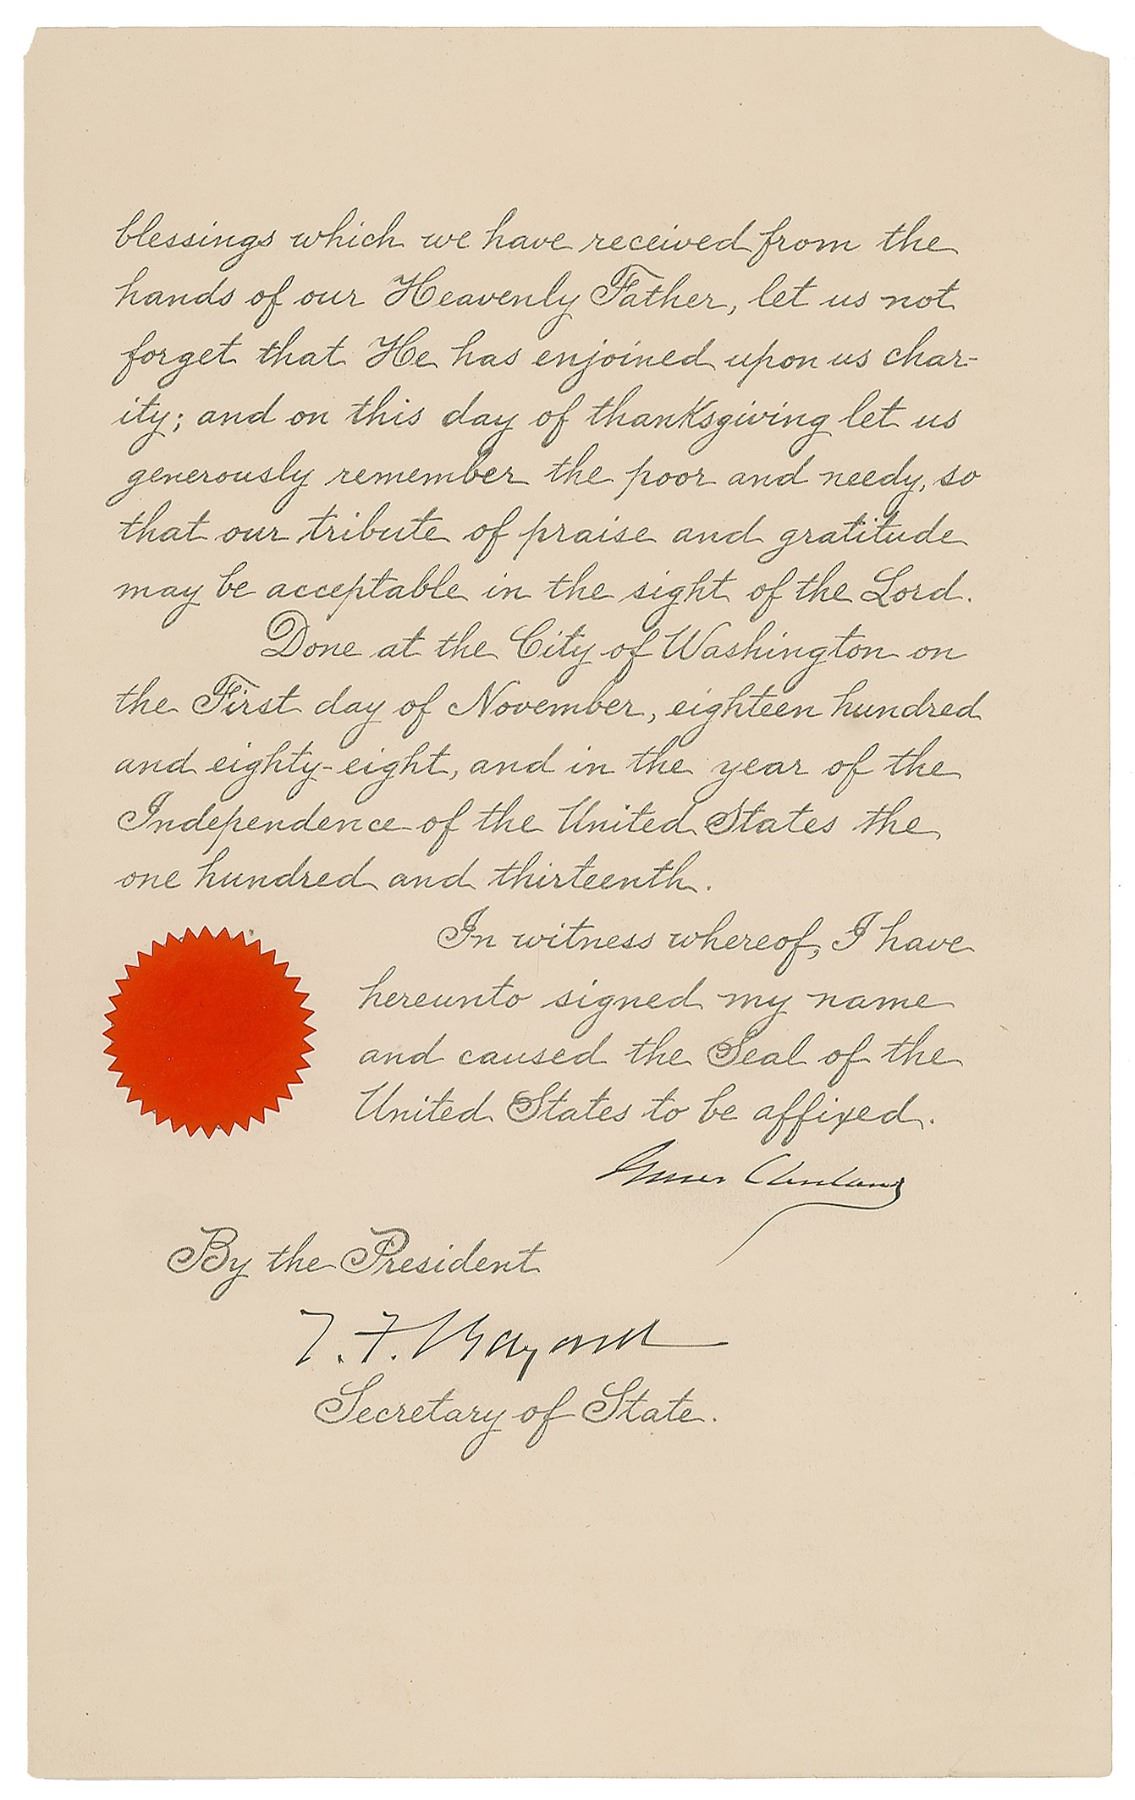 blessings which we have received from the
hands of our Heavenly Father, let us not
forget that He has enjoined upon us char-
ity; and on this day of thanksgiving let us
generously remember the poor and needy, so
that our tribute of praise and gratitude
may be acceptable in the sight of the Lord.
Done at the City of Washington on
the First day of November, eighteen hundred
and eighty-eight, and in the year of the
Independence of the United States the
one hundred and thirteenth.
In witness whereof, I have
hereunto signed my name
and caused the Seal of the
United States to be affixed.
Grover Cleveland
By the President
T. F. Bayard
Secretary of State.